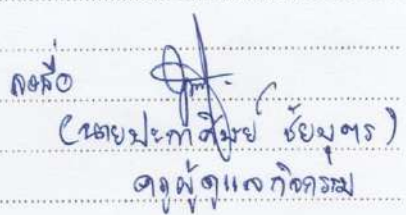 ลงชื่อ
(นายประกาศิตย์ ชัยบุตร)
ครูผู้ดูแลกิจกรรม